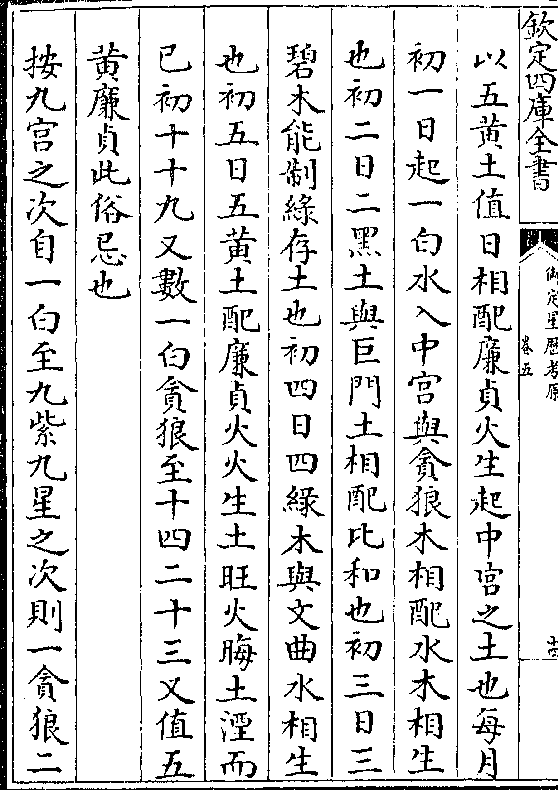 欽定四庫全書
御定星厯考原
卷五
十四
以五黄土值日相配廉貞火生起中宫之土也每月
初一日起一白水入中宫與貪狼木相配水木相生
也初二日二黑土與巨門土相配比和也初三日三
碧木能制緑存土也初四日四緑木與文曲水相生
也初五日五黄土配廉貞火火生土旺火晦土溼而
已初十十九又數一白貪狼至十四二十三又值五
黄廉貞此俗忌也
按九宫之次自一白至九紫九星之次則一貪狼二